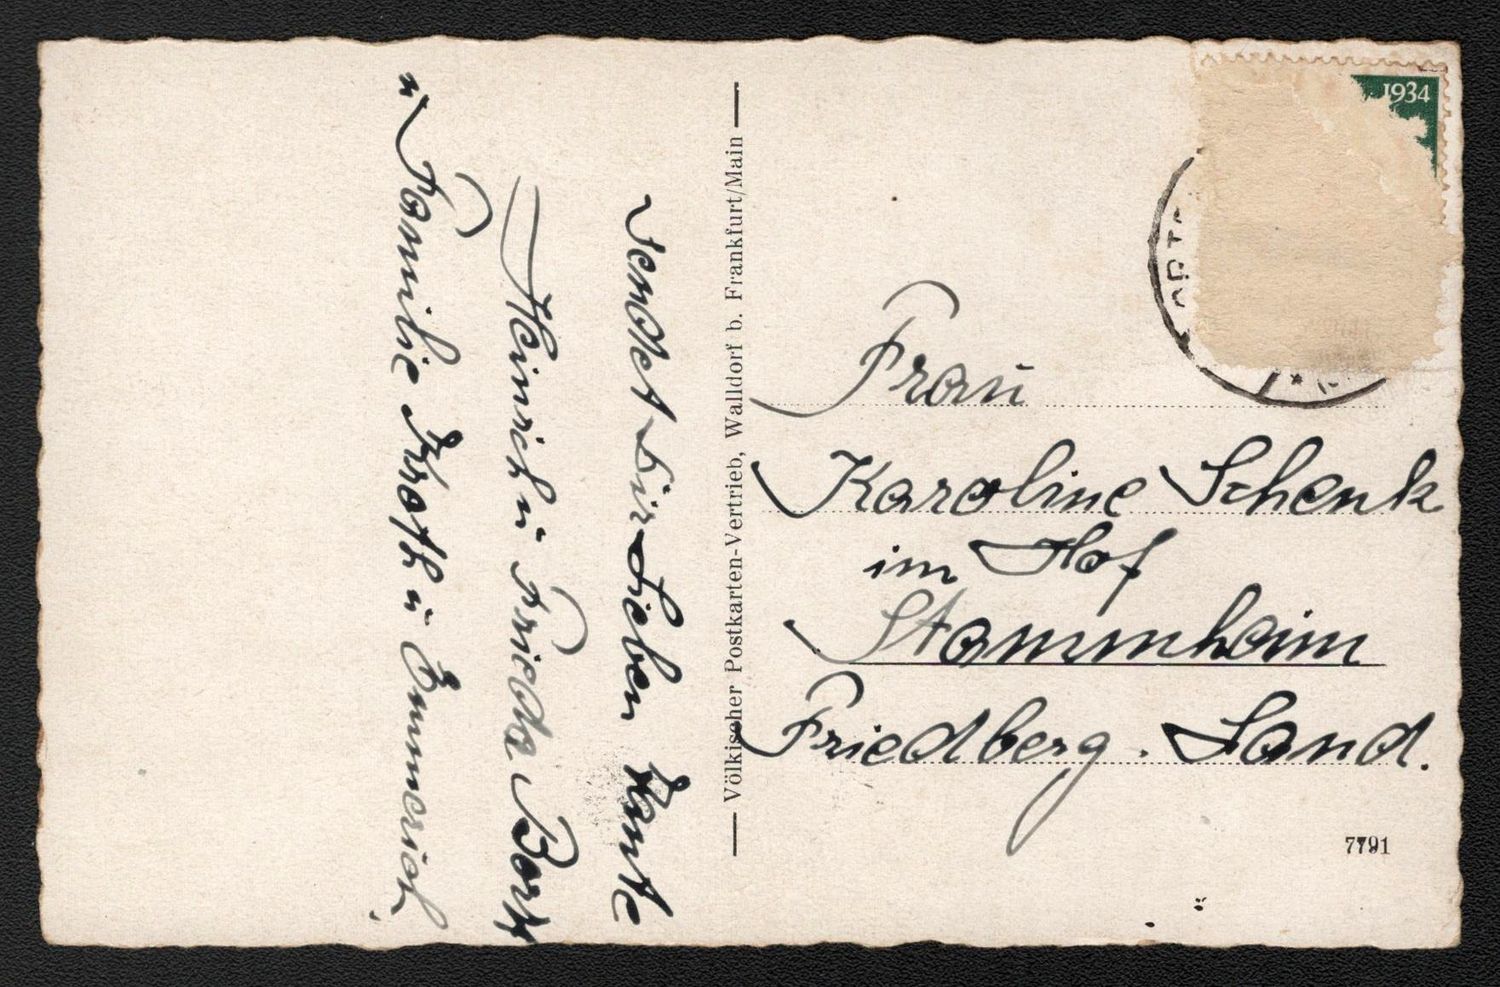 sendet dir Lieben Tante
Heinrich u Frieda Bork
u Familie Kroth u Emmerich
Völkischer Postkarten-Vertrieb, Walldorf b. Frankfurt/Main
1934
Frau
Karoline Schenk
im Hof
Stammheim
Friedberg. Land.
7791